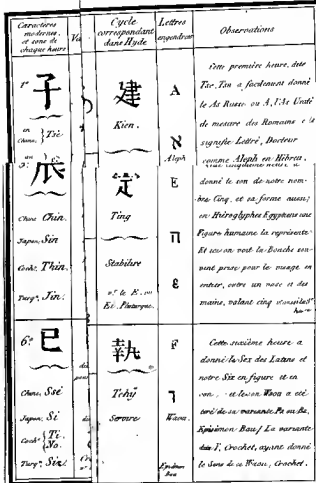 Caractères modernes, et sons de chaque heure
Cycle correspondant dans Hyde
Lettres engendrées
Observations
1º 子
en Chine, } Tsè
建
Kien.
A
א
Aleph
Cette première heure, dite
Tse, Tsa a facilement donné
le As Russe ou A, l'As Unité
de mesure des Romains
signifie Lettré, Docteur
comme Aleph en Hébreu.
5º 辰
Chine Chin.
Japon, Sin
Coch. Thin.
Turq. Jin.
定
Ting
Stabilire
vº le E. ou
Ei. Plutarque.
E
ה
ε
donné le son de notre nom-
bre Cinq, et sa forme aussi;
en Hiéroglyphes Egyptiens une
Figure humaine la représente
Et en on voit la Bouche sou-
vent prise pour le visage en
entier, outre un nez et des
mains, valant cinq
6º 巳
Chine, Ssé
Japon, Si
Coch. { Ti. No.
Turq. Six.
執
Tchÿ
Servire
F
ו
Waou.
Episimon
bau
Cette sixième heure a
donné le Sex des Latins et
notre Six en figure et en
son, et le son Waou a été
tiré de sa variante Pa ou Ba,
Episimon Bau. La variante
dite I, Crochet, ayant donné
le Sens de ce Waou, Crochet.